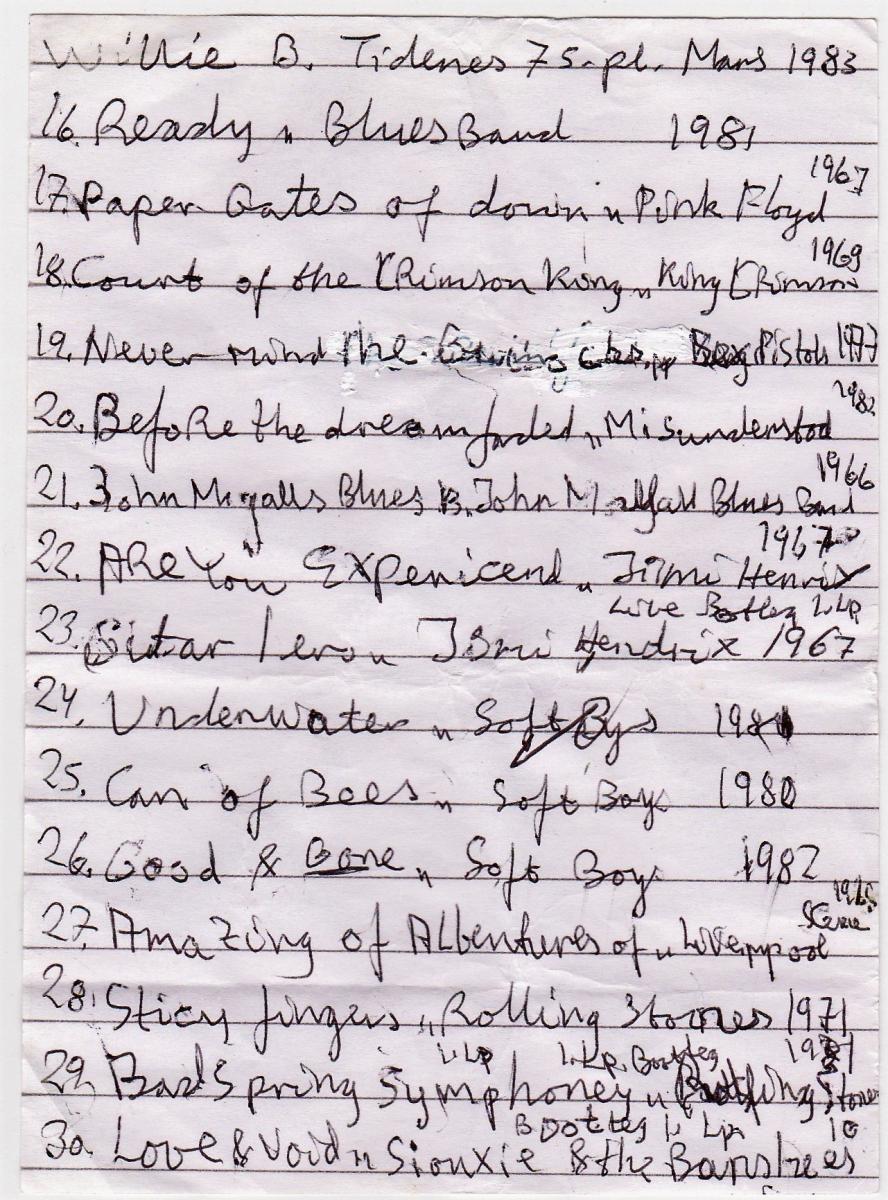 Willie B. Tidenes 75. pl. Mars 1983
16. Ready „ Blues Band 1981
1967
17. Paper Gates of down „ Pink Floyd
1969
18. Court of the CRimson King „ King CRimson
19. Never mind the „ Sex Pistols 1977
1982
20. BefoRe the dream faded „ Misunderstod
1966
21. John Mayalls Blues B. John Mayall Blues Band
1967
22. ARe You Expenicend „ Jimi Henrix
Live Bootleg 1. Lp
23. Jimi Hendrix 1967
24. Underwater „ Soft Boys 1981
25. Can of Bees „ Soft Boys 1980
26. Good & Gone „ Soft Boys 1982
Scene
27. Amazing of Albentures of „ Liverppool
28. Sticy fingers „ Rolling Stones 1971
1. Lp 1. Lp. Bootleg
29. BadSpring Symphoney „ Stones
Bootleg 1. Lp.
30. Love & Void „ Siouxie & the Banshees